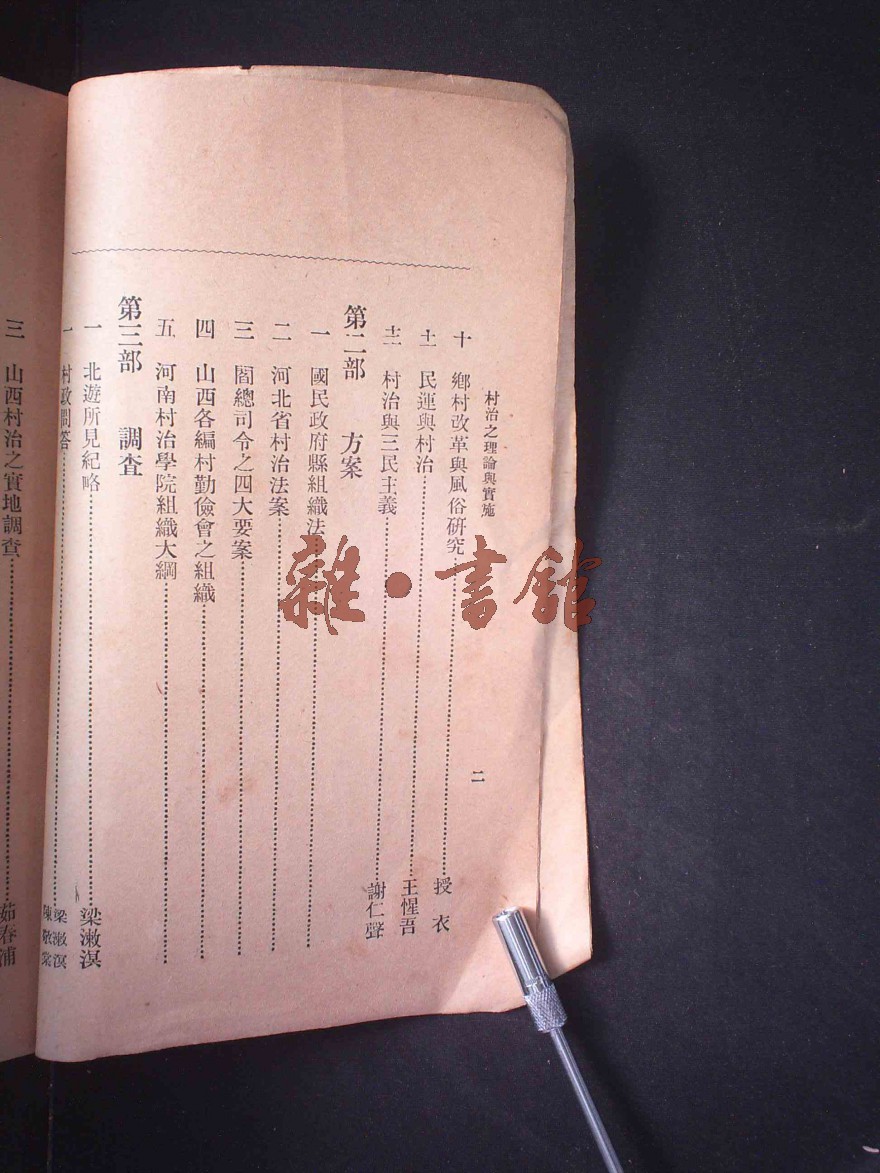 村治之理論與實施
二
十 鄉村改革與風俗研究 授衣
十一 民運與村治 王惺吾
十二 村治與三民主義 謝仁聲
第二部 方案
一 國民政府縣組織法
二 河北省村治法案
三 閻總司令之四大要案
四 山西各編村勤儉會之組織
五 河南村治學院組織大綱
第三部 調査
一 北遊所見紀略 梁漱溟
村政問答 梁漱溟 陳敬棠
三 山西村治之實地調查 茹春浦
雜·書舘